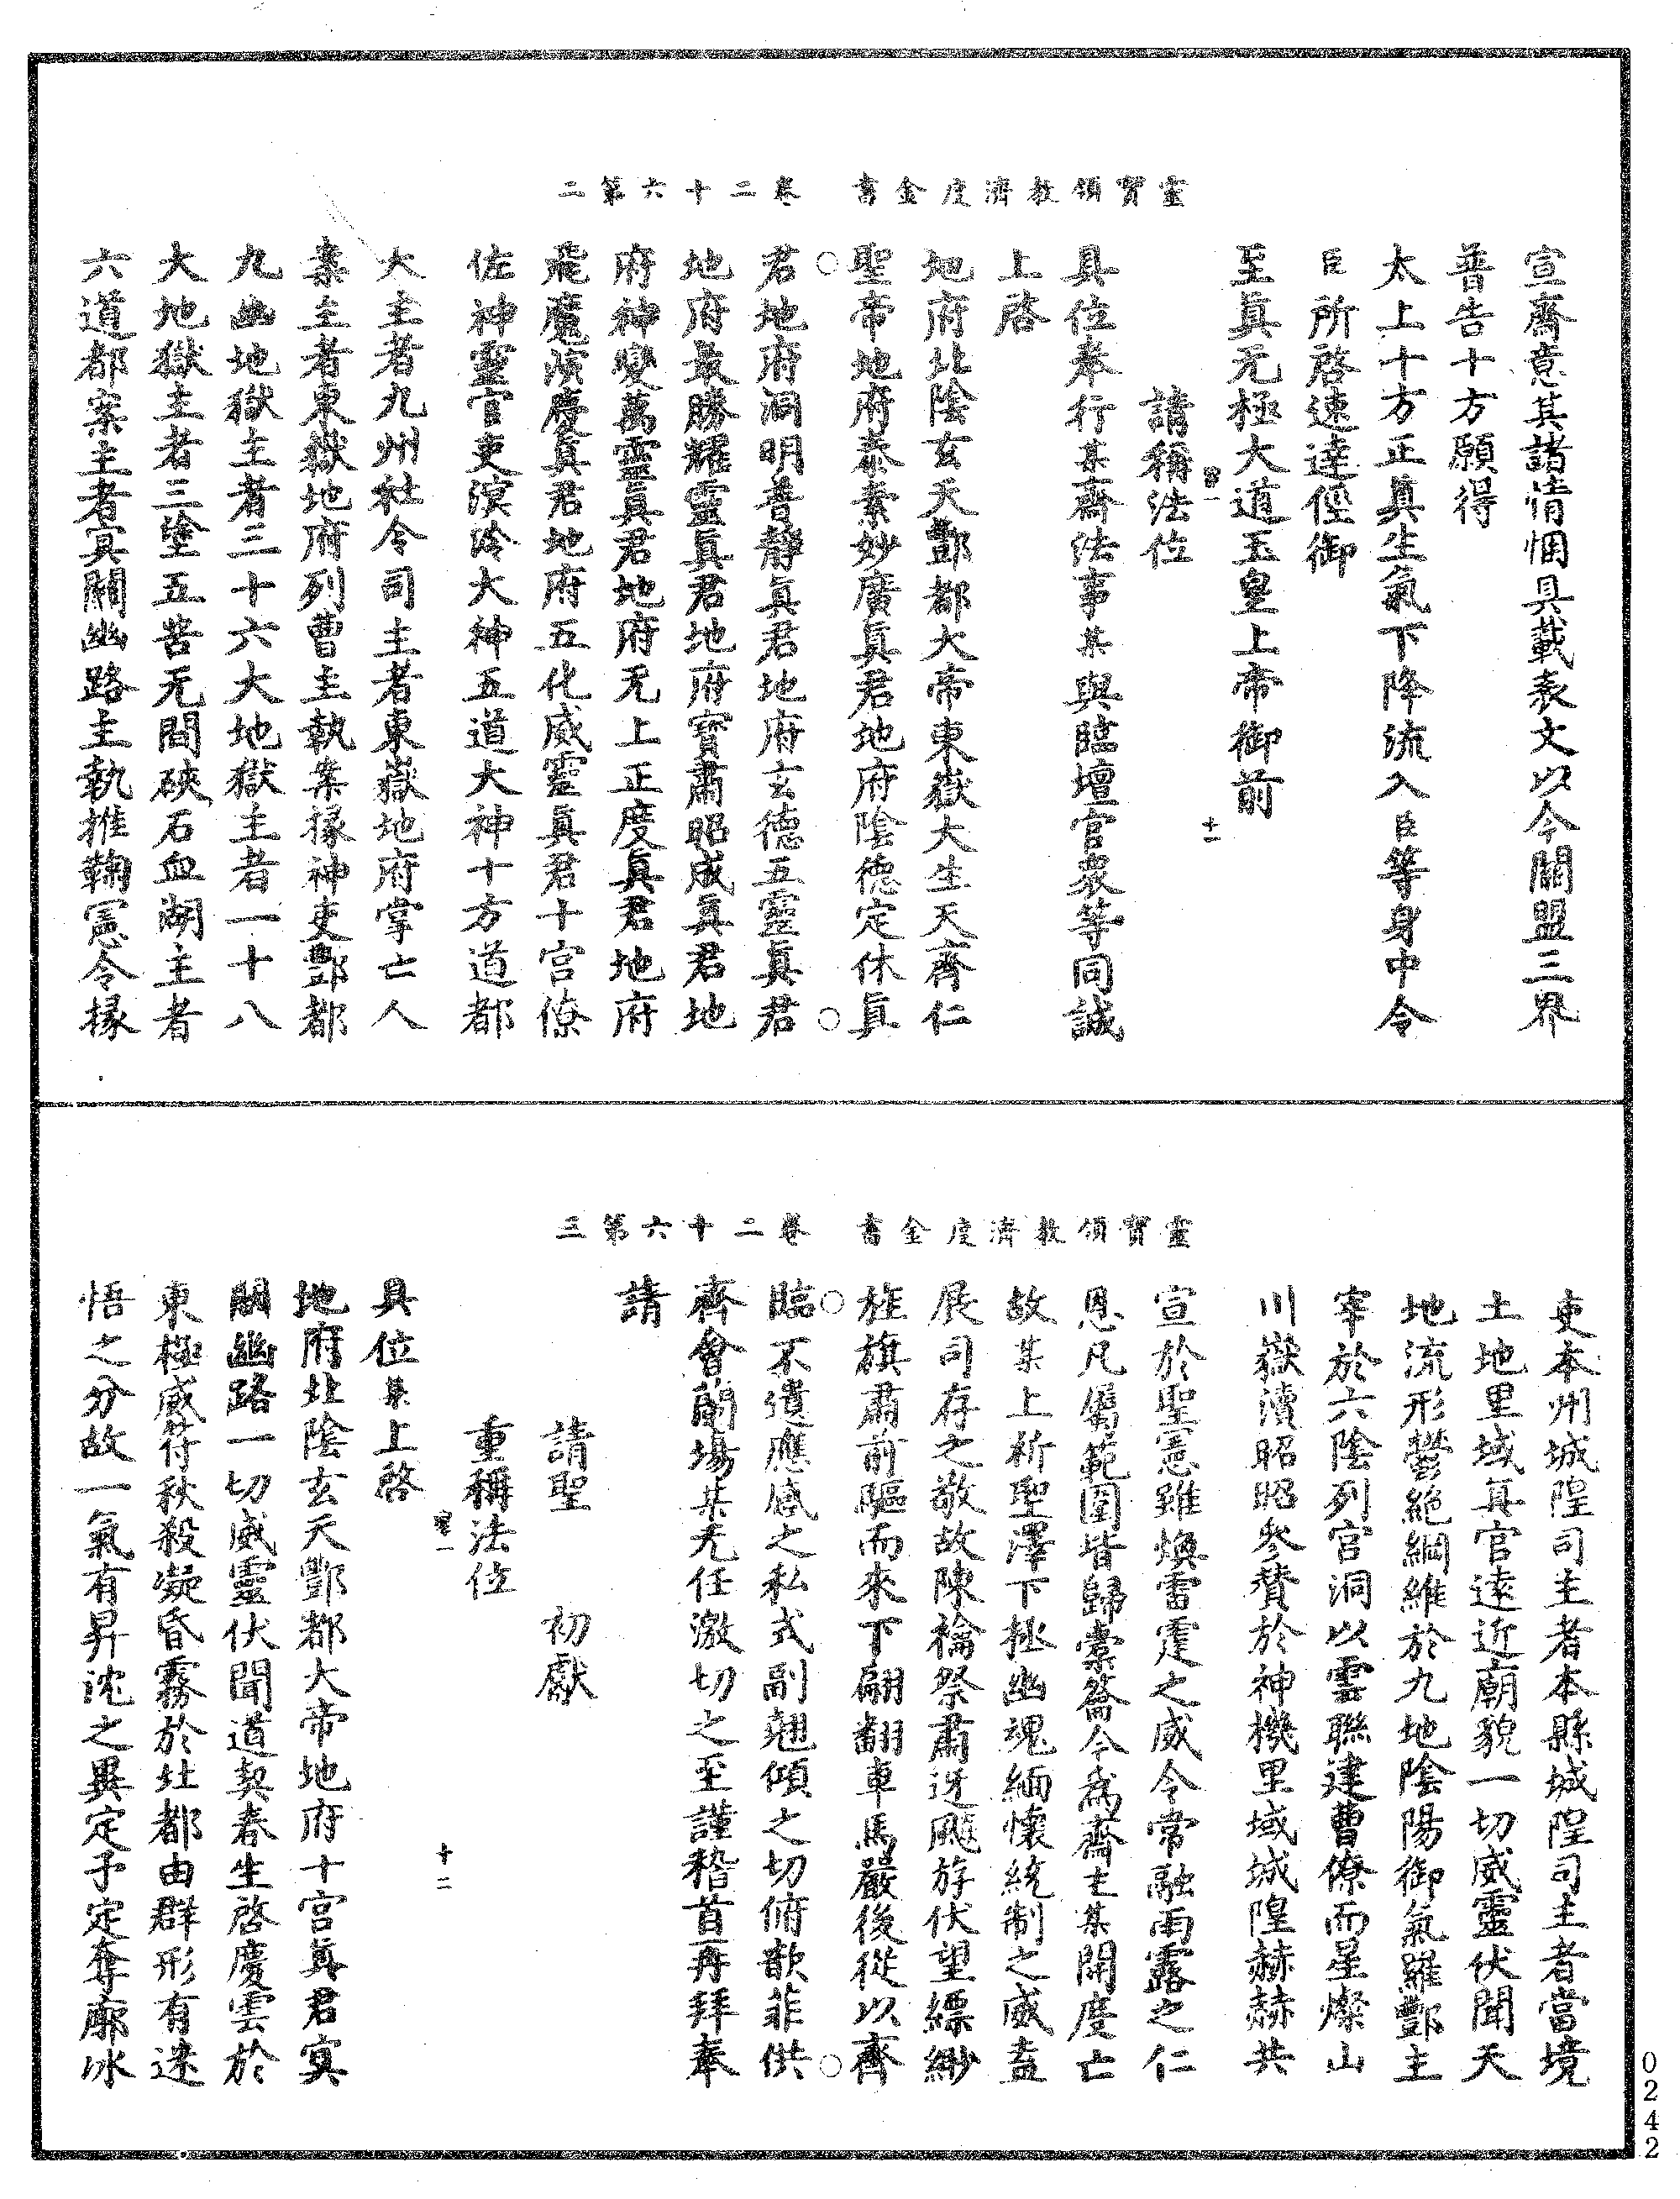 靈寶領教濟度金書 卷二十六第二
宣齋意其諸情悃具載表文以今關盟三界
普告十方願得
太上十方正真生氣下降流入臣等身中令
臣所啓速達徑御
至真无極大道玉皇上帝御前
請稱法位
十二
具位奉行某齋法事某與臨壇官衆等同誠
上啓
地府北陰玄天酆都大帝東嶽大生天齊仁
聖帝地府泰素妙廣真君地府陰德定休真
君地府洞明普靜真君地府玄德五靈真君
地府最勝耀靈真君地府寶肅昭成真君地
府神變萬靈真君地府无上正度真君地府
飛魔演慶真君地府五化威靈真君十宮僚
佐神靈官吏溟泠大神五道大神十方道都
大主者九州社令司主者東嶽地府掌亡人
案主者東嶽地府列曹主執案掾神吏酆都
九幽地獄主者三十六大地獄主者一十八
大地獄主者三塗五苦无間硤石血湖主者
六道都案主者冥關幽路主執推鞠冥令掾
靈寶領教濟度金書 卷二十六第三
吏本州城隍司主者本縣城隍司主者當境
土地里域真官遠近廟貌一切威靈伏聞天
地流形嘗絕綱維於九地陰陽御氣羅酆主
宰於六陰列宮洞以雲聯建曹僚而星燦山
川嶽瀆昭昭參贊於神機里域城隍赫赫共
宣於聖憲雖煥雷霆之威令常融雨露之仁
恩凡屬範圍皆歸橐籥今為齋主某開度亡
故某上祈聖澤下拯幽魂緬懷統制之威盍
展司存之敬故陳禬祭肅迓飈斿伏望縹緲
旌旗肅前驅而來下翩翻車馬嚴後從以齊
臨不遺應感之私式副翹傾之切俯歆菲供
齊會蘭場某无任激切之至謹稽首再拜奉
請
請聖 初獻
重稱法位
十二
具位某上啓
地府北陰玄天酆都大帝地府十宮真君冥
關幽路一切威靈伏聞道契春生啓慶雲於
東極威符秋殺凝昏霧於北都由群形有迷
悟之分故一氣有昇沈之異定予定奪廓冰
0242